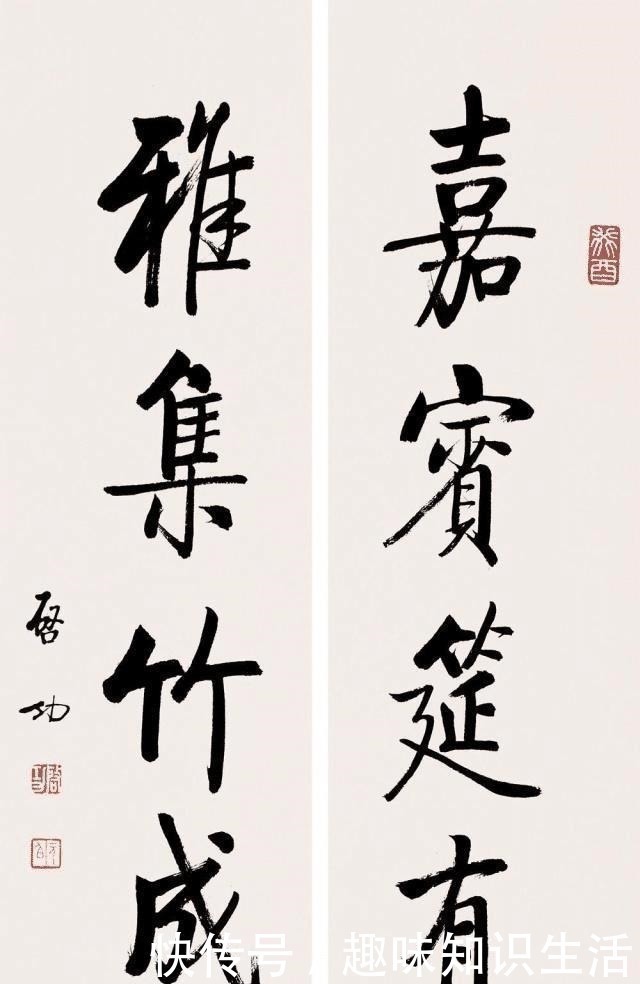 嘉賓筵有
雅集竹成
启功
癸酉
快传号 / 趣味知识生活